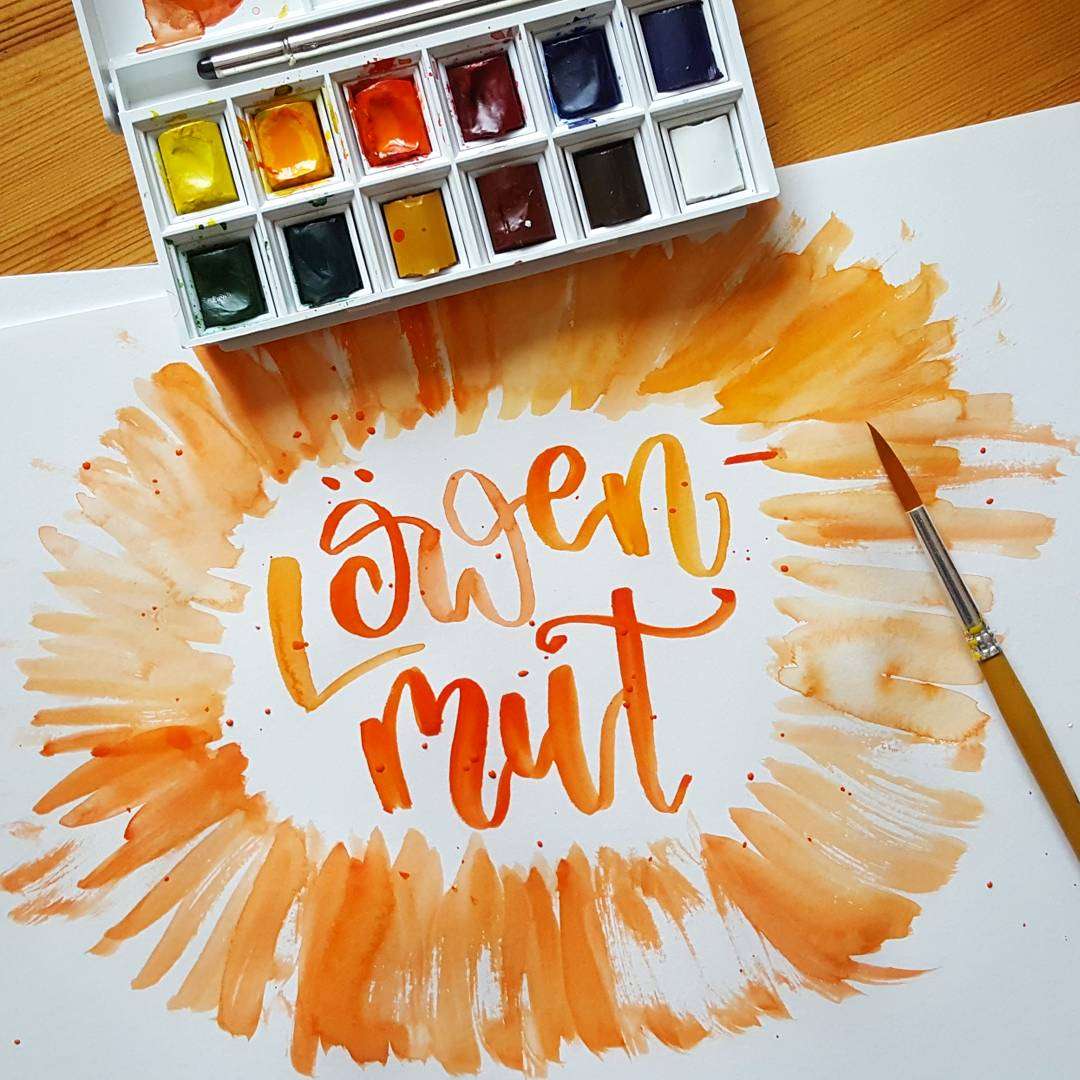 Löwen-
mut